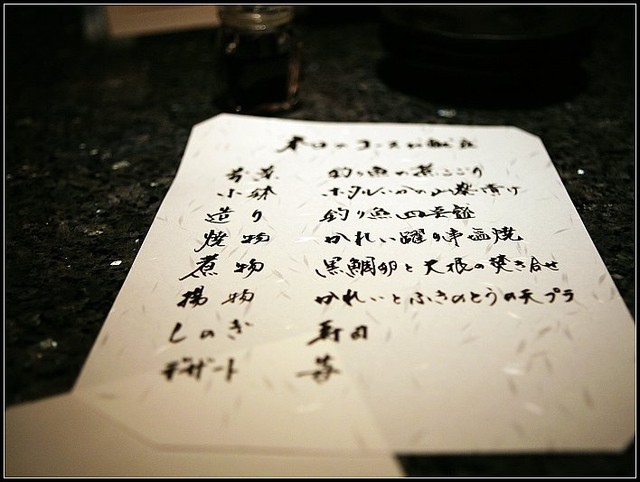 本日のコースお献立
釣り魚の煮こごり
小鉢 ホタルいかの山葵漬け
造り 釣り魚四種盛
焼物 かれい踊り串塩焼
煮物 黒鯛卵と大根の焚き合せ
揚物 かれいとふきのとうの天プラ
しのぎ 寿司
デザート 苺